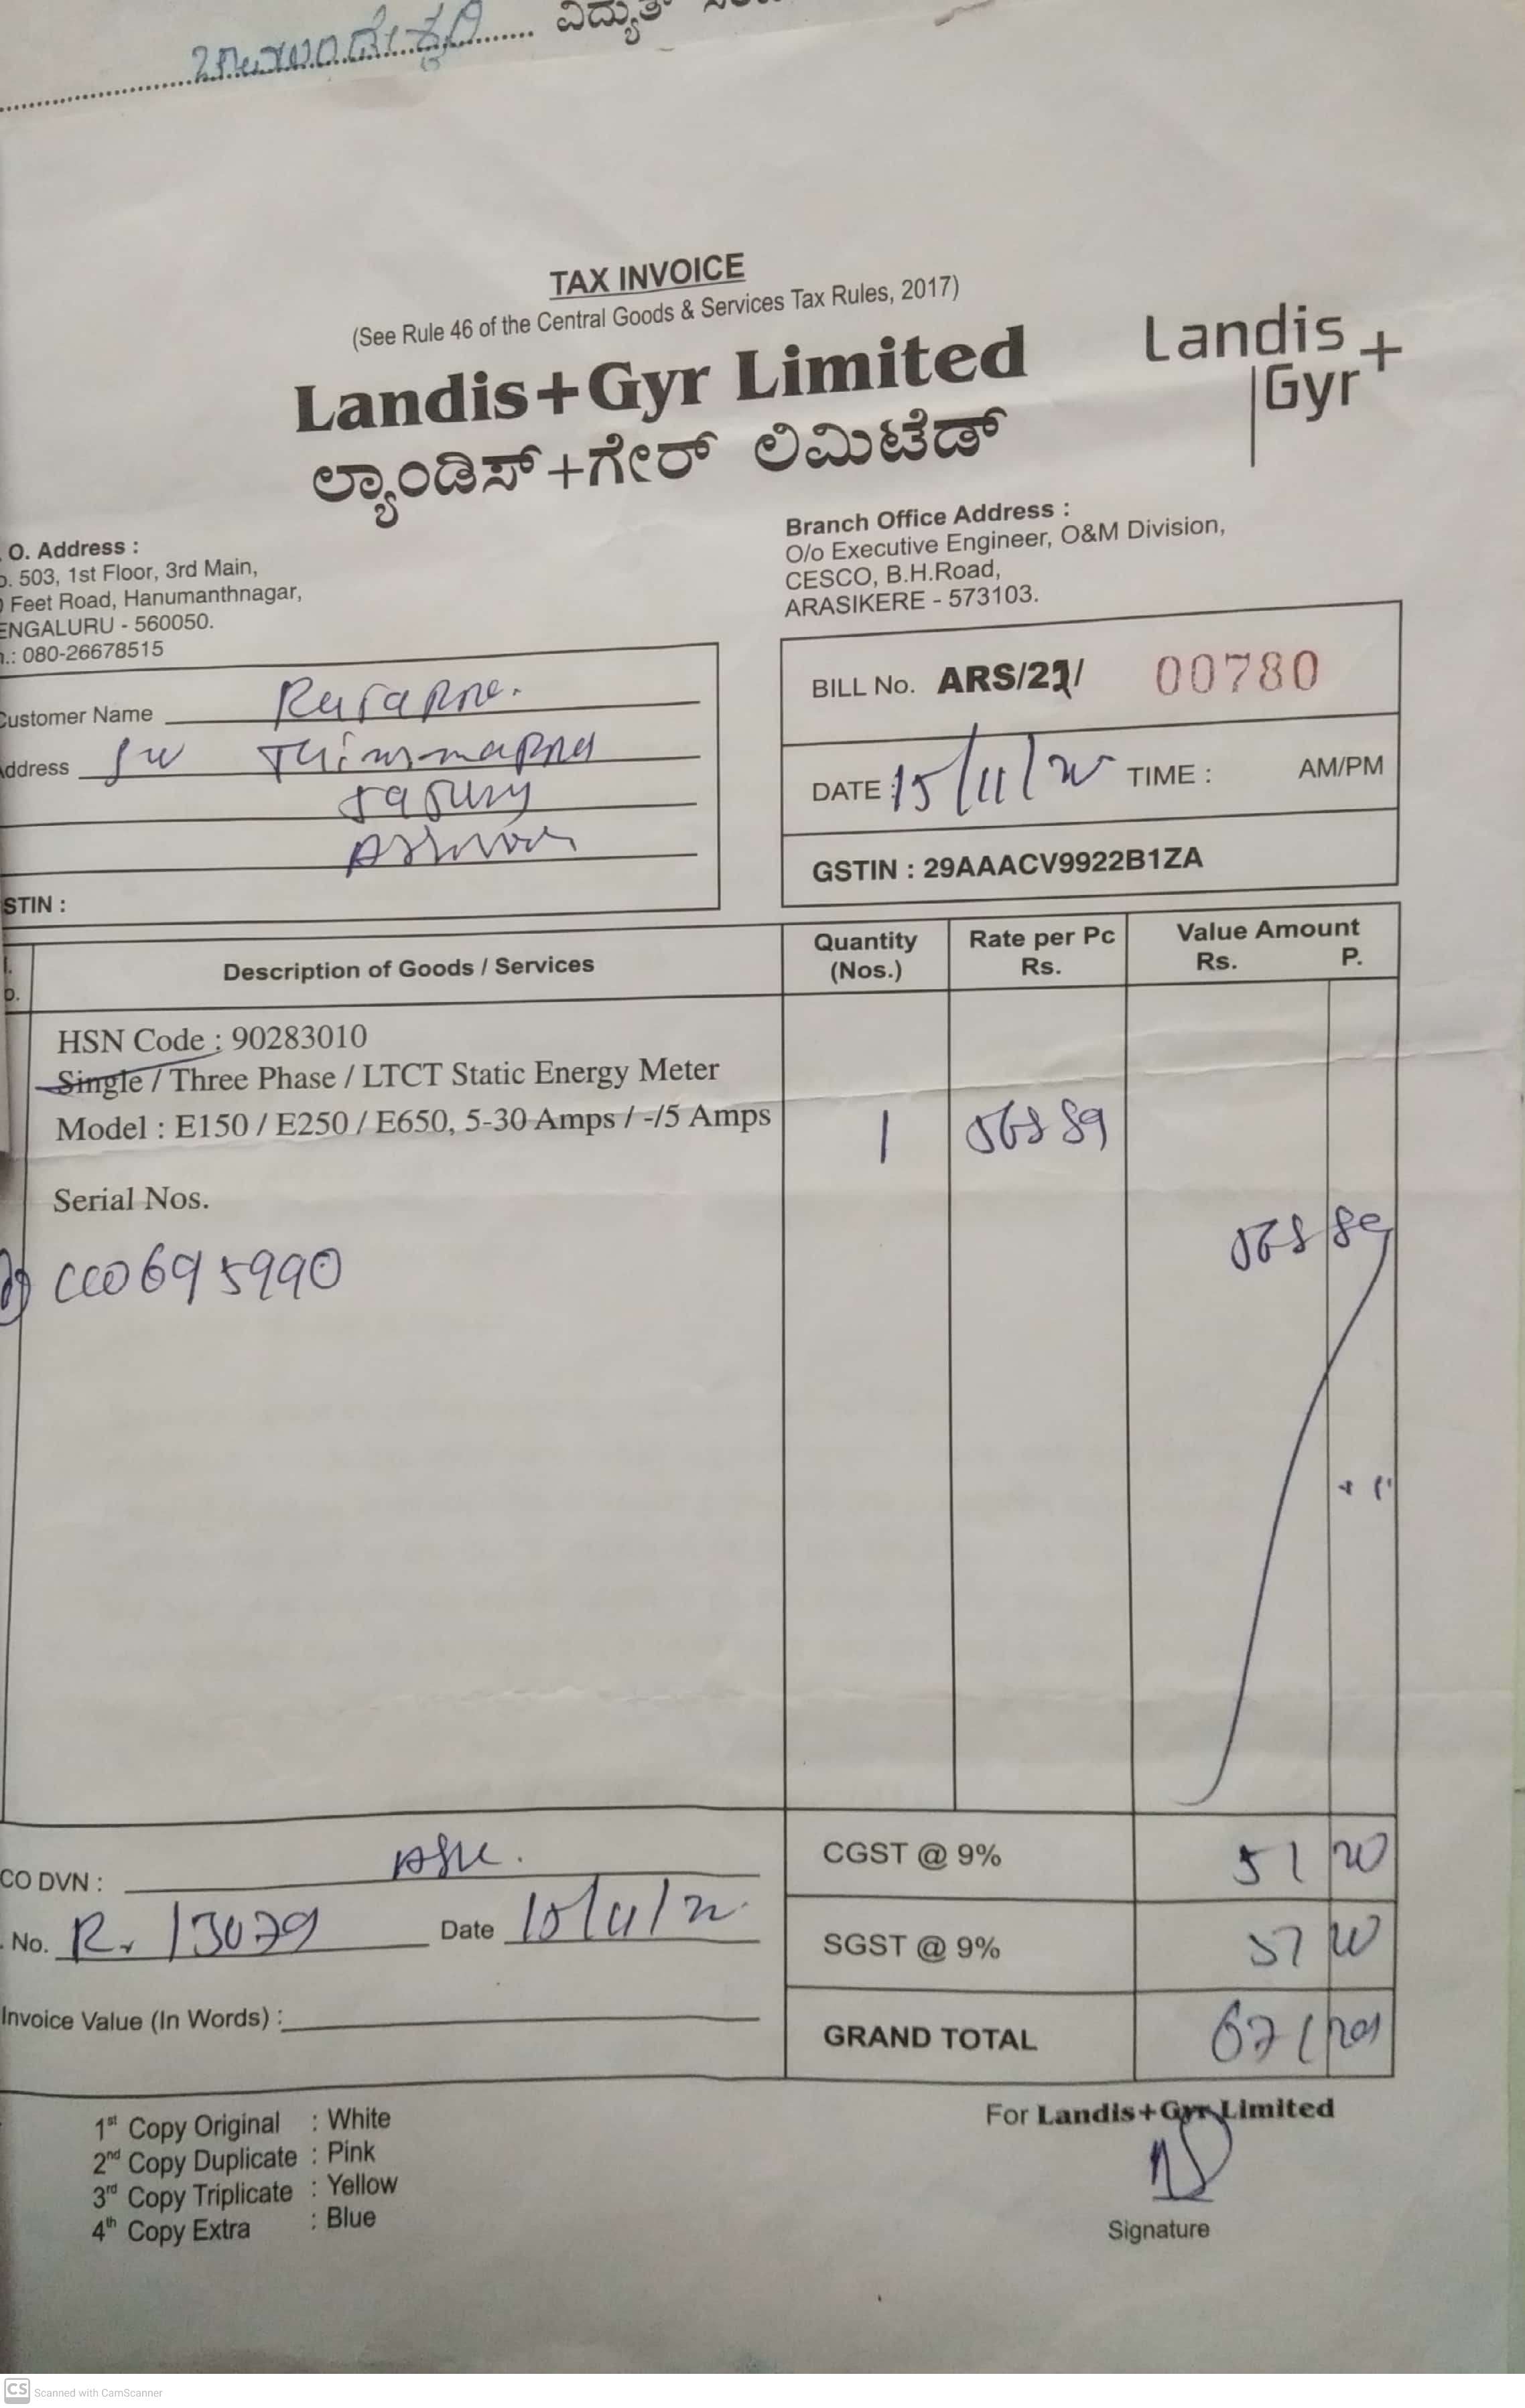 ವಿದ್ಯುತ್
TAX INVOICE
(See Rule 46 of the Central Goods & Services Tax Rules, 2017)
Landis+Gyr Limited
ಲ್ಯಾಂಡಿಸ್+ಗೇರ್ ಲಿಮಿಟೆಡ್
Landis
Gyr+
O. Address :
o. 503, 1st Floor, 3rd Main,
Feet Road, Hanumanthnagar,
ENGALURU - 560050.
.: 080-26678515
Branch Office Address :
O/o Executive Engineer, O&M Division,
CESCO, B.H.Road,
ARASIKERE - 573103.
Customer Name
Address
STIN :
BILL No. ARS/21/ 00780
DATE : 15/11/2 TIME : AM/PM
GSTIN : 29AAACV9922B1ZA
Description of Goods / Services
Quantity (Nos.)
Rate per Pc Rs.
Value Amount Rs. P.
HSN Code : 90283010
Single / Three Phase / LTCT Static Energy Meter
Model : E150 / E250 / E650, 5-30 Amps / -/5 Amps 1 568 89
Serial Nos.
568 89
695990
CO DVN :
No. R. 13079 Date
Invoice Value (In Words) :
CGST @ 9% 51 20
SGST @ 9% 51 20
GRAND TOTAL 671
1st Copy Original : White
2nd Copy Duplicate : Pink
3rd Copy Triplicate : Yellow
4th Copy Extra : Blue
For Landis+Gyr Limited
Signature
CS Scanned with CamScanner